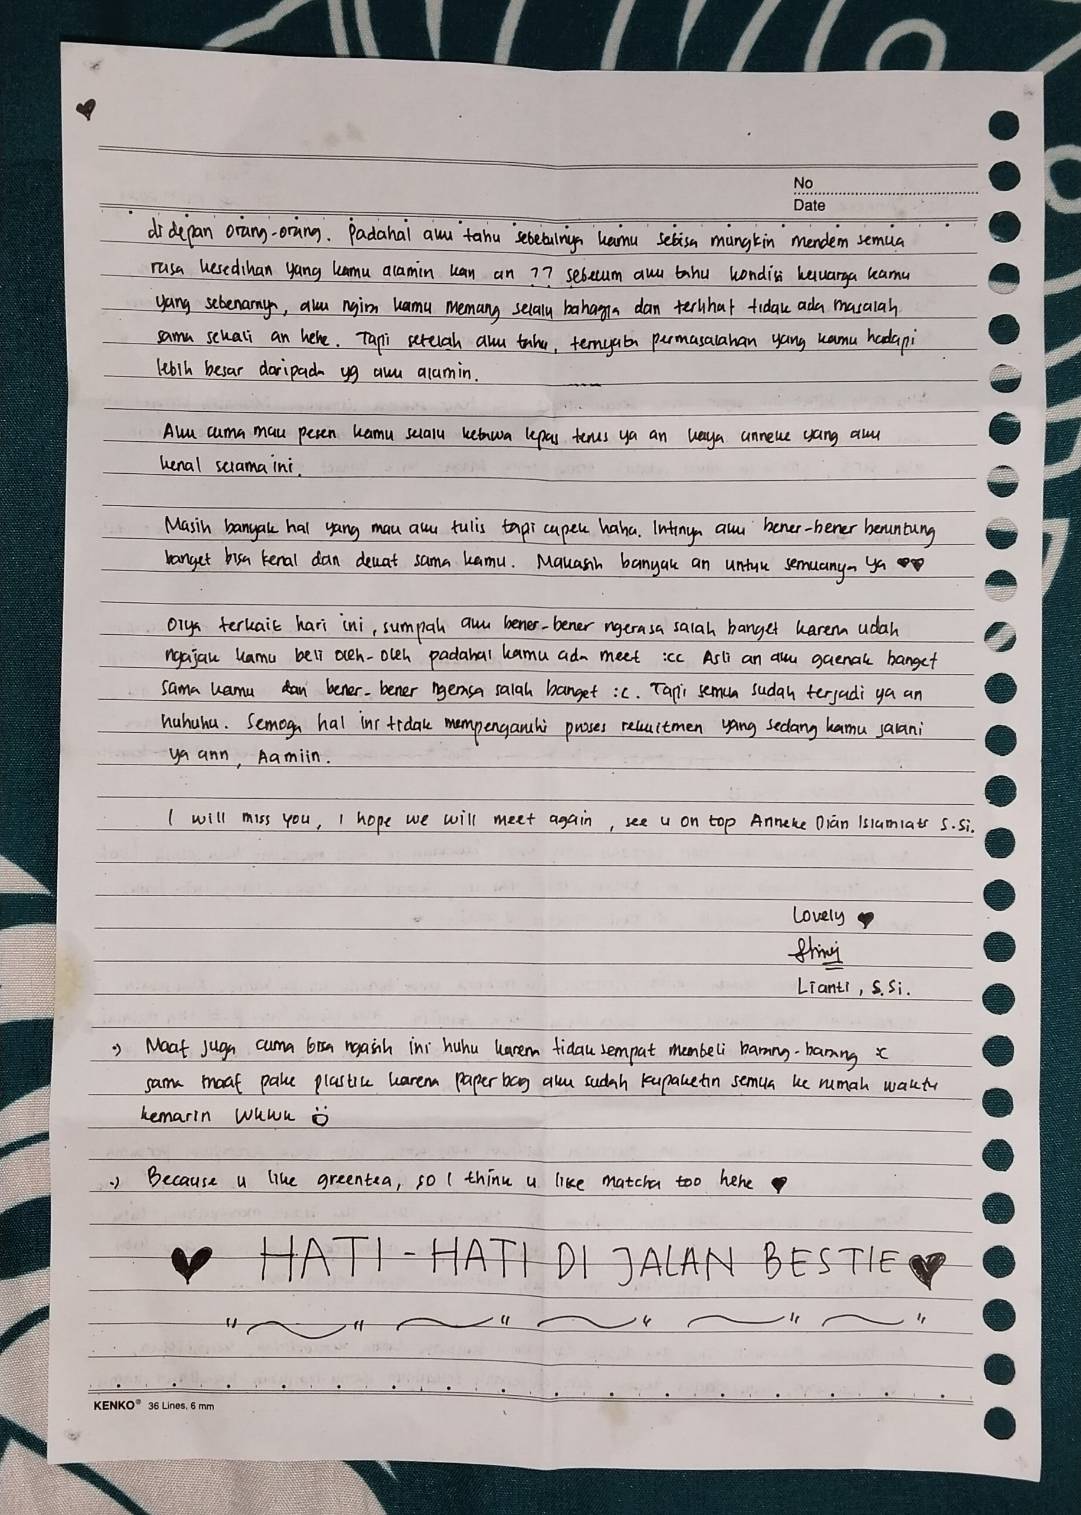 No
Date
di depan orang-orang. Padahal aku tahu sebetulnya kamu sebisa mungkin mendem semua
rasa kesedihan yang kamu alamin kan an ?? sebelum aku tahu kondisi keluarga kamu
yang sebenarnya, aku ngira kamu memang selalu bahagia dan terlihat tidak ada masalah
sama sekali an hehe. Tapi setelah aku tahu, ternyata permasalahan yang kamu hadapi
lebih besar daripada yg aku alamin.
Aku cuma mau pesen kamu selalu ketawa lepas terus ya an kaya anneke yang aku
kenal selama ini.
Masih banyak hal yang mau aku tulis tapi capek haha. Intinya aku bener-bener beruntung
banget bisa kenal dan dekat sama kamu. Makasih banyak an untuk semuanya ya ♥♥
Oiya terkait hari ini, sumpah aku bener-bener ngerasa salah banget karena udah
ngajak kamu beli oleh-oleh padahal kamu ada meet :cc Asli an aku gaenak banget
sama kamu dan bener-bener ngerasa salah banget :c. Tapi semua sudah terjadi ya an
huhuhu. Semoga hal ini tidak mempengaruhi proses rekruitmen yang sedang kamu jalani
ya ann, Aamiin.
I will miss you, I hope we will meet again, see u on top Anneke Dian Islamiati S.Si.
Lovely ♥
Lianti, S.Si.
Maaf juga cuma bisa ngasih ini huhu karena tidak sempat membeli barang-barang x
sama maaf pake plastik karena paper bag aku sudah kupaketin semua ke rumah waktu
kemarin wkwk
Because u like greentea, so I think u like matcha too hehe ♥
♥ HATI-HATI DI JALAN BESTIE ♥
KENKO® 36 Lines, 6 mm